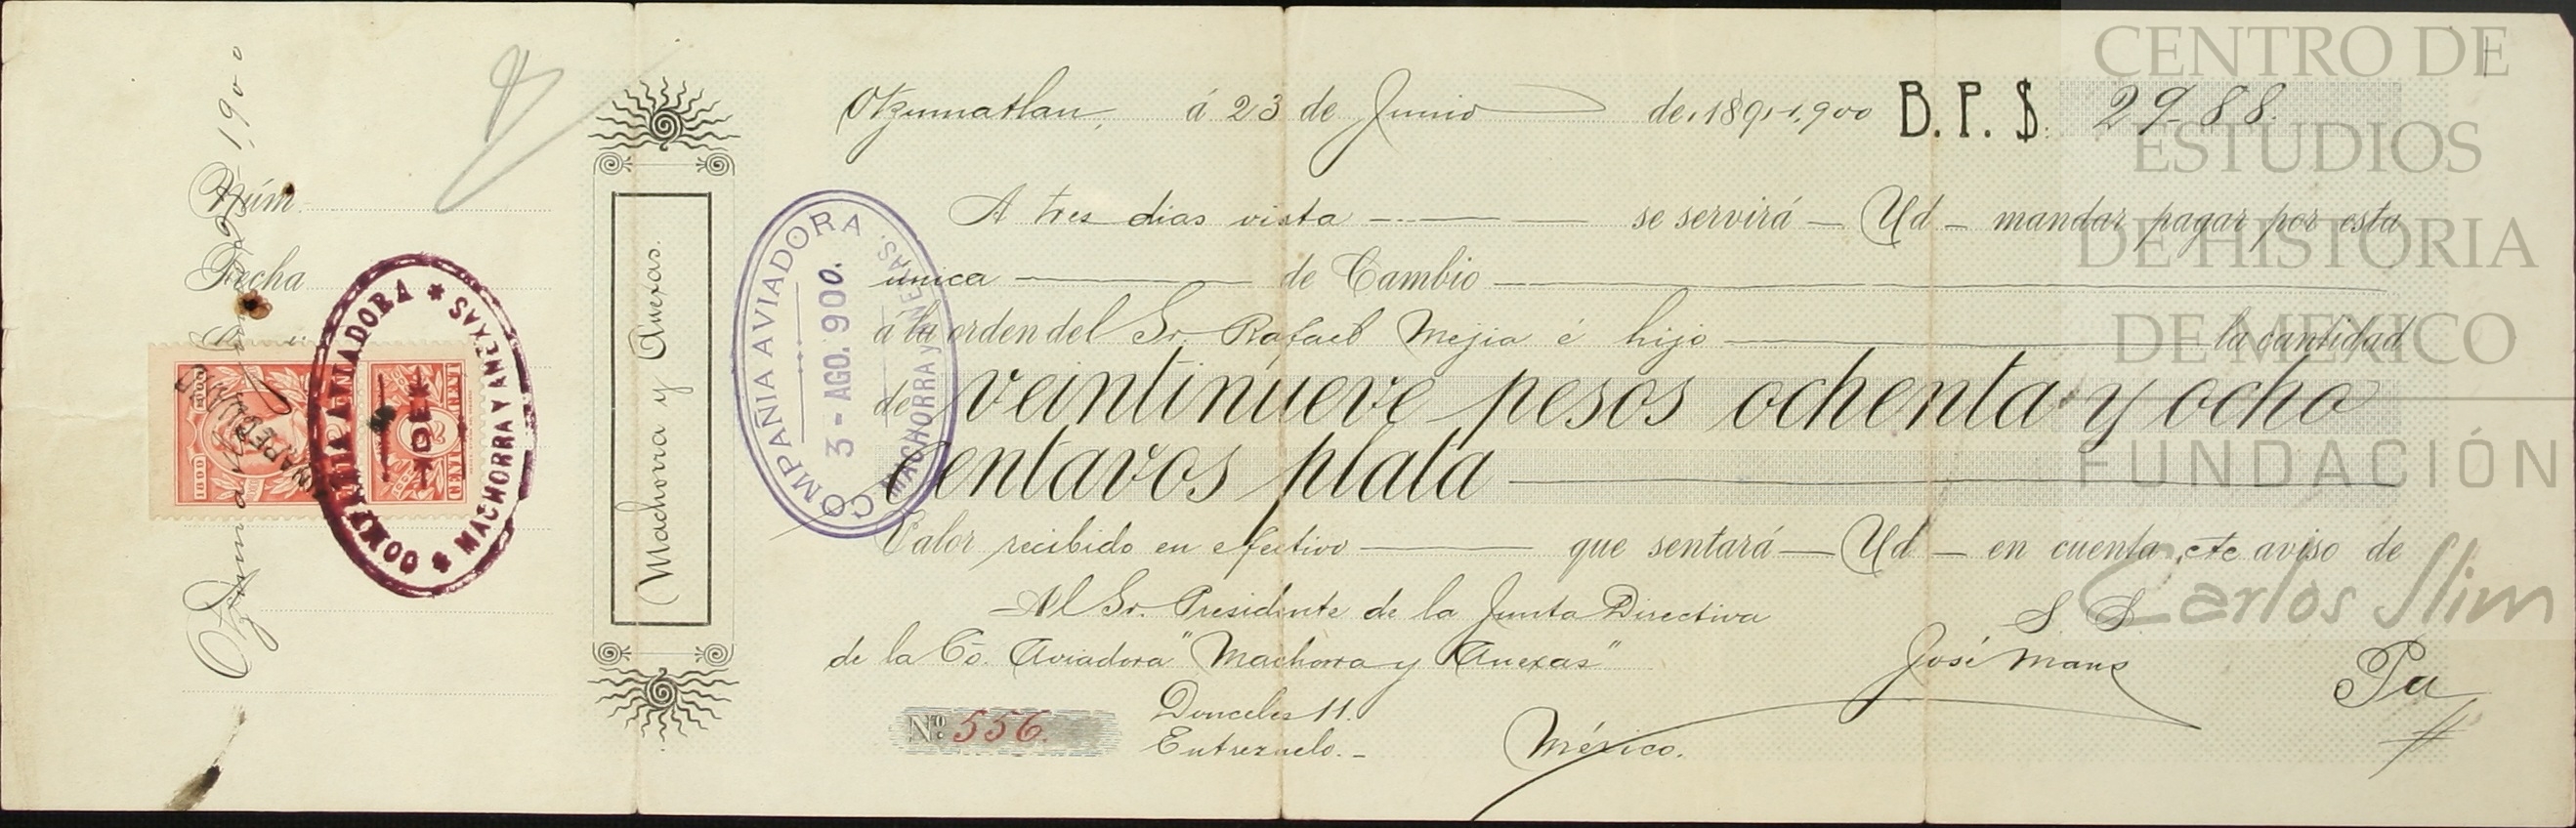 Otzumatlan, á 23 de Junio de 189,-1,900 B. P. $ 29-88.
A tres dias vista se servirá Ud mandar pagar por esta
única de Cambio
a la orden del Sr. Rafael Mejia é hijo la cantidad
de veintinueve pesos ochenta y ocho
centavos plata
Valor recibido en efectivo que sentará Ud en cuenta cte aviso de
Al Sr. Presidente de la Junta Directiva S. S.
de la Co. Aviadora "Machorra y Anexas" José Mans Pa
Donceles 11.
Nº 556.
Entrezuelo.- México.
Machorra y Anexas.
COMPAÑIA AVIADORA
3 - AGO. 900.
MACHORRA y ANEXAS.
Núm.
Fecha
1,900
COMPAÑIA AVIADORA
MACHORRA Y ANEXAS
1899 1900
CENTRO DE
ESTUDIOS
DE HISTORIA
DE MÉXICO
FUNDACIÓN
Carlos Slim